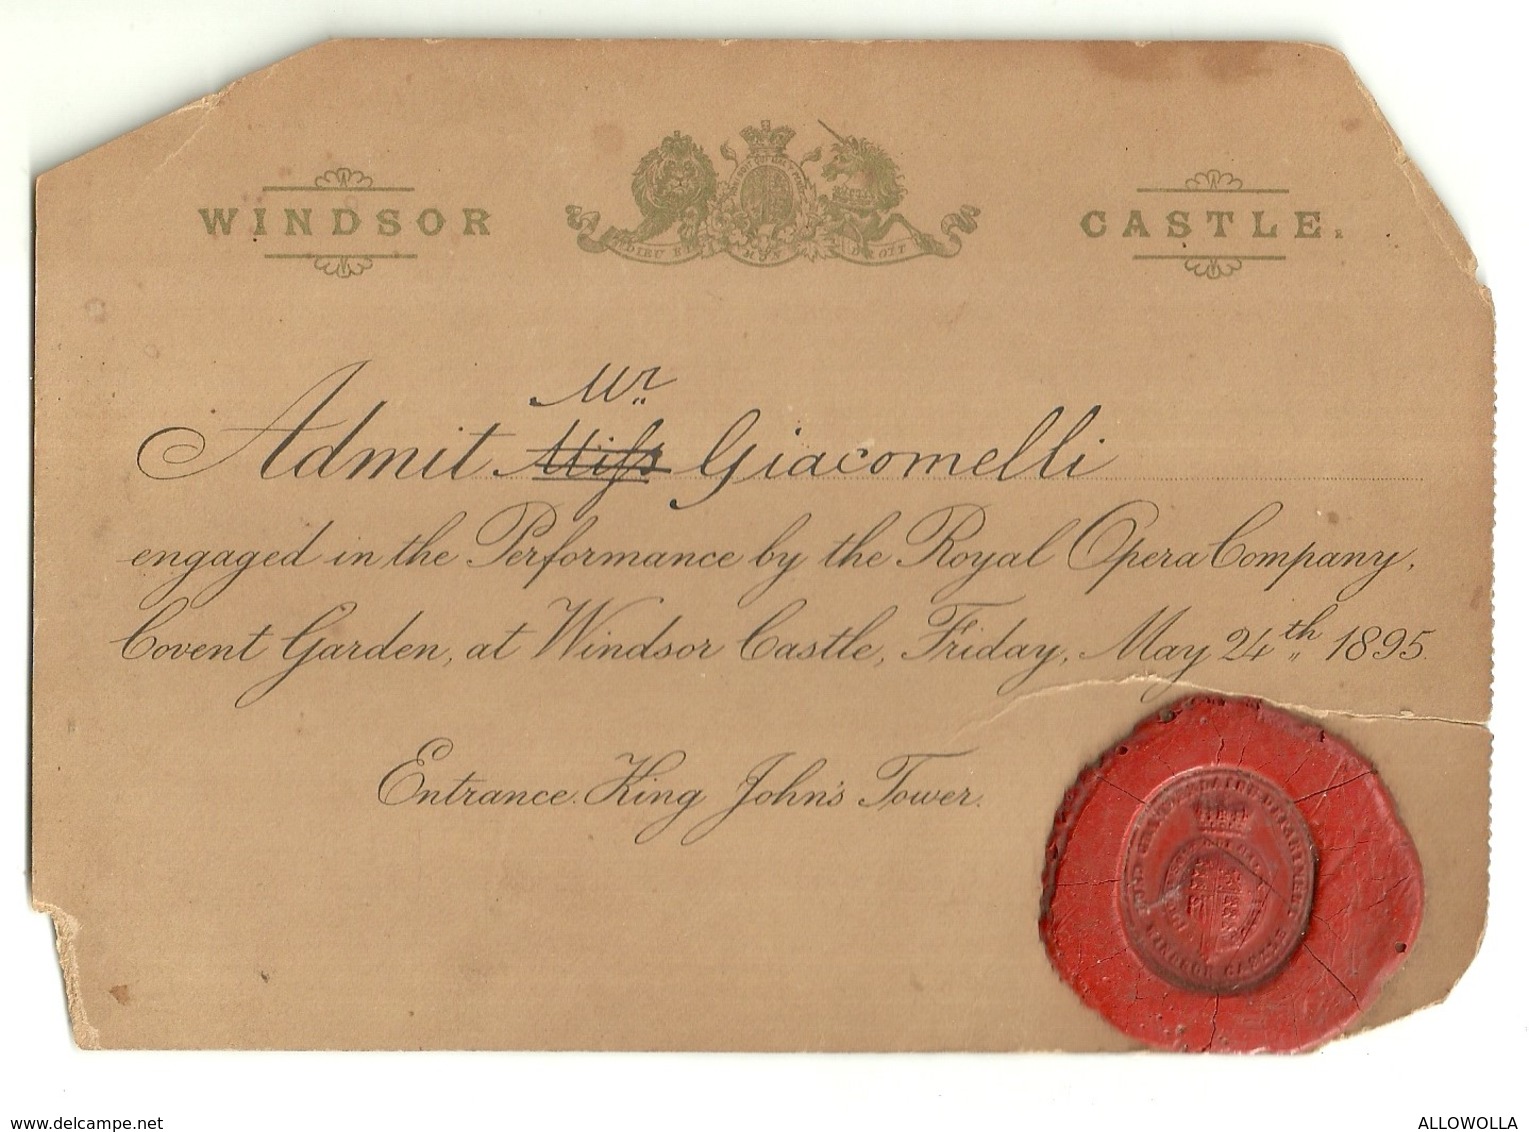 WINDSOR CASTLE.
DIEU ET MON DROIT
Mr
Admit Miss Giacomelli
engaged in the Performance by the Royal Opera Company,
Covent Garden, at Windsor Castle, Friday, May 24th 1895.
Entrance. King John's Tower.
WINDSOR CASTLE
www.delcampe.net
ALLOWOLLA